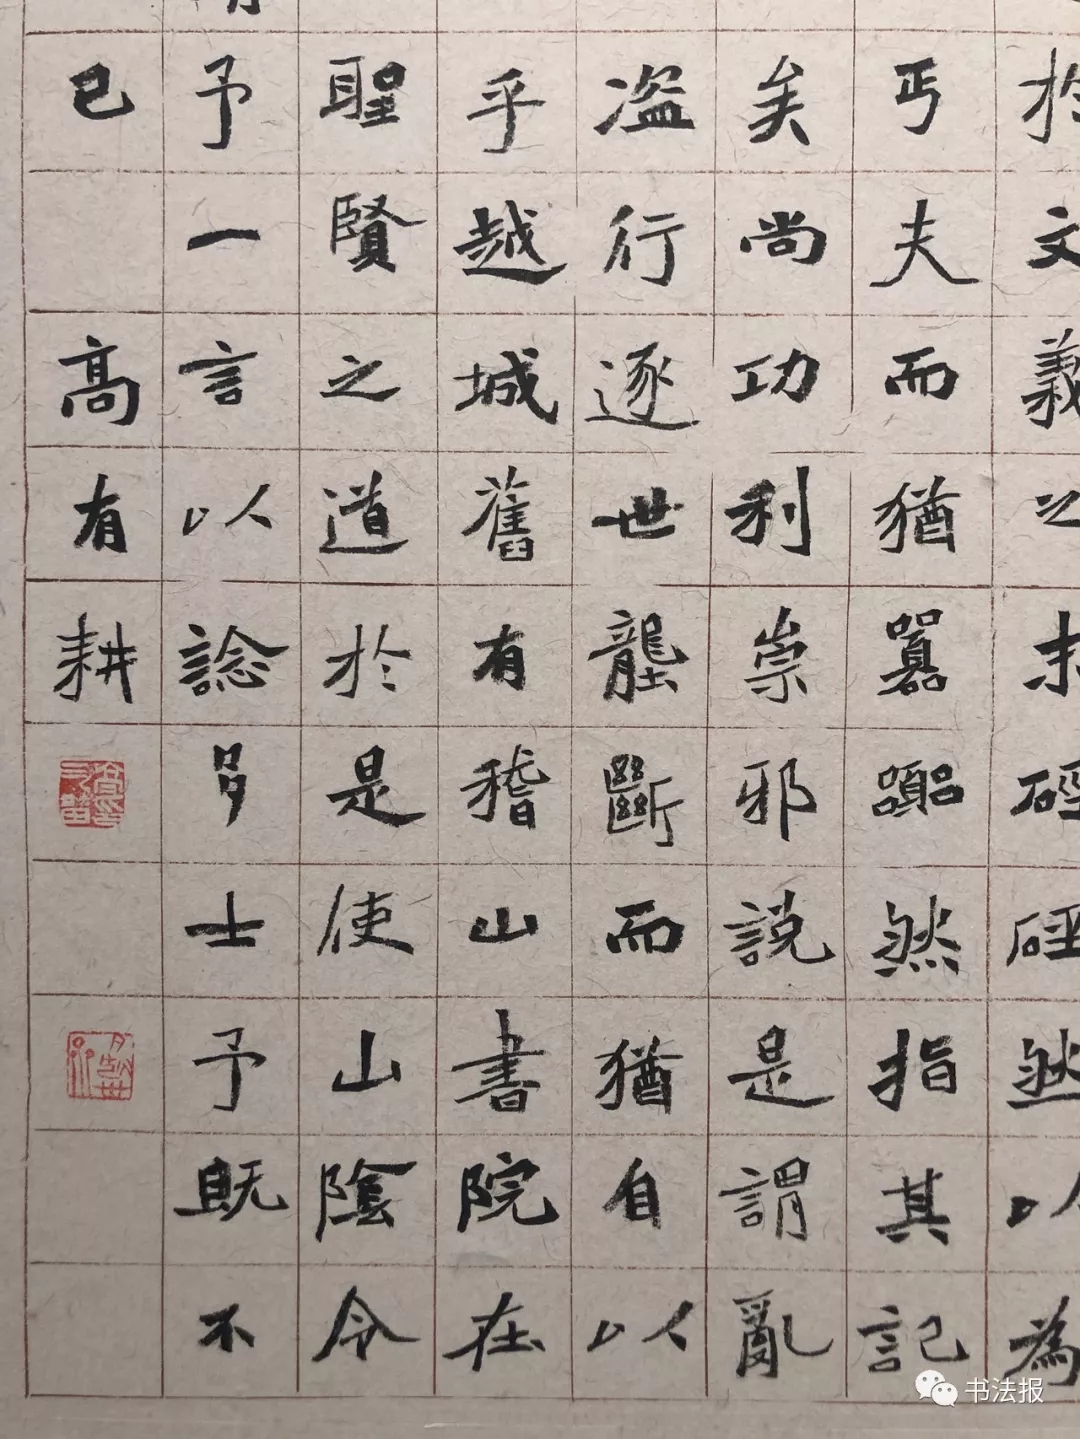 於文義之末硜硜然以為
丐夫而猶囂囂然指其記
矣尚功利崇邪說是謂亂
盗行逐世壟斷而猶自以
乎越城舊有稽山書院在
聖賢之道於是使山陰令
予一言以諗多士予既不
已 高有耕
书法报